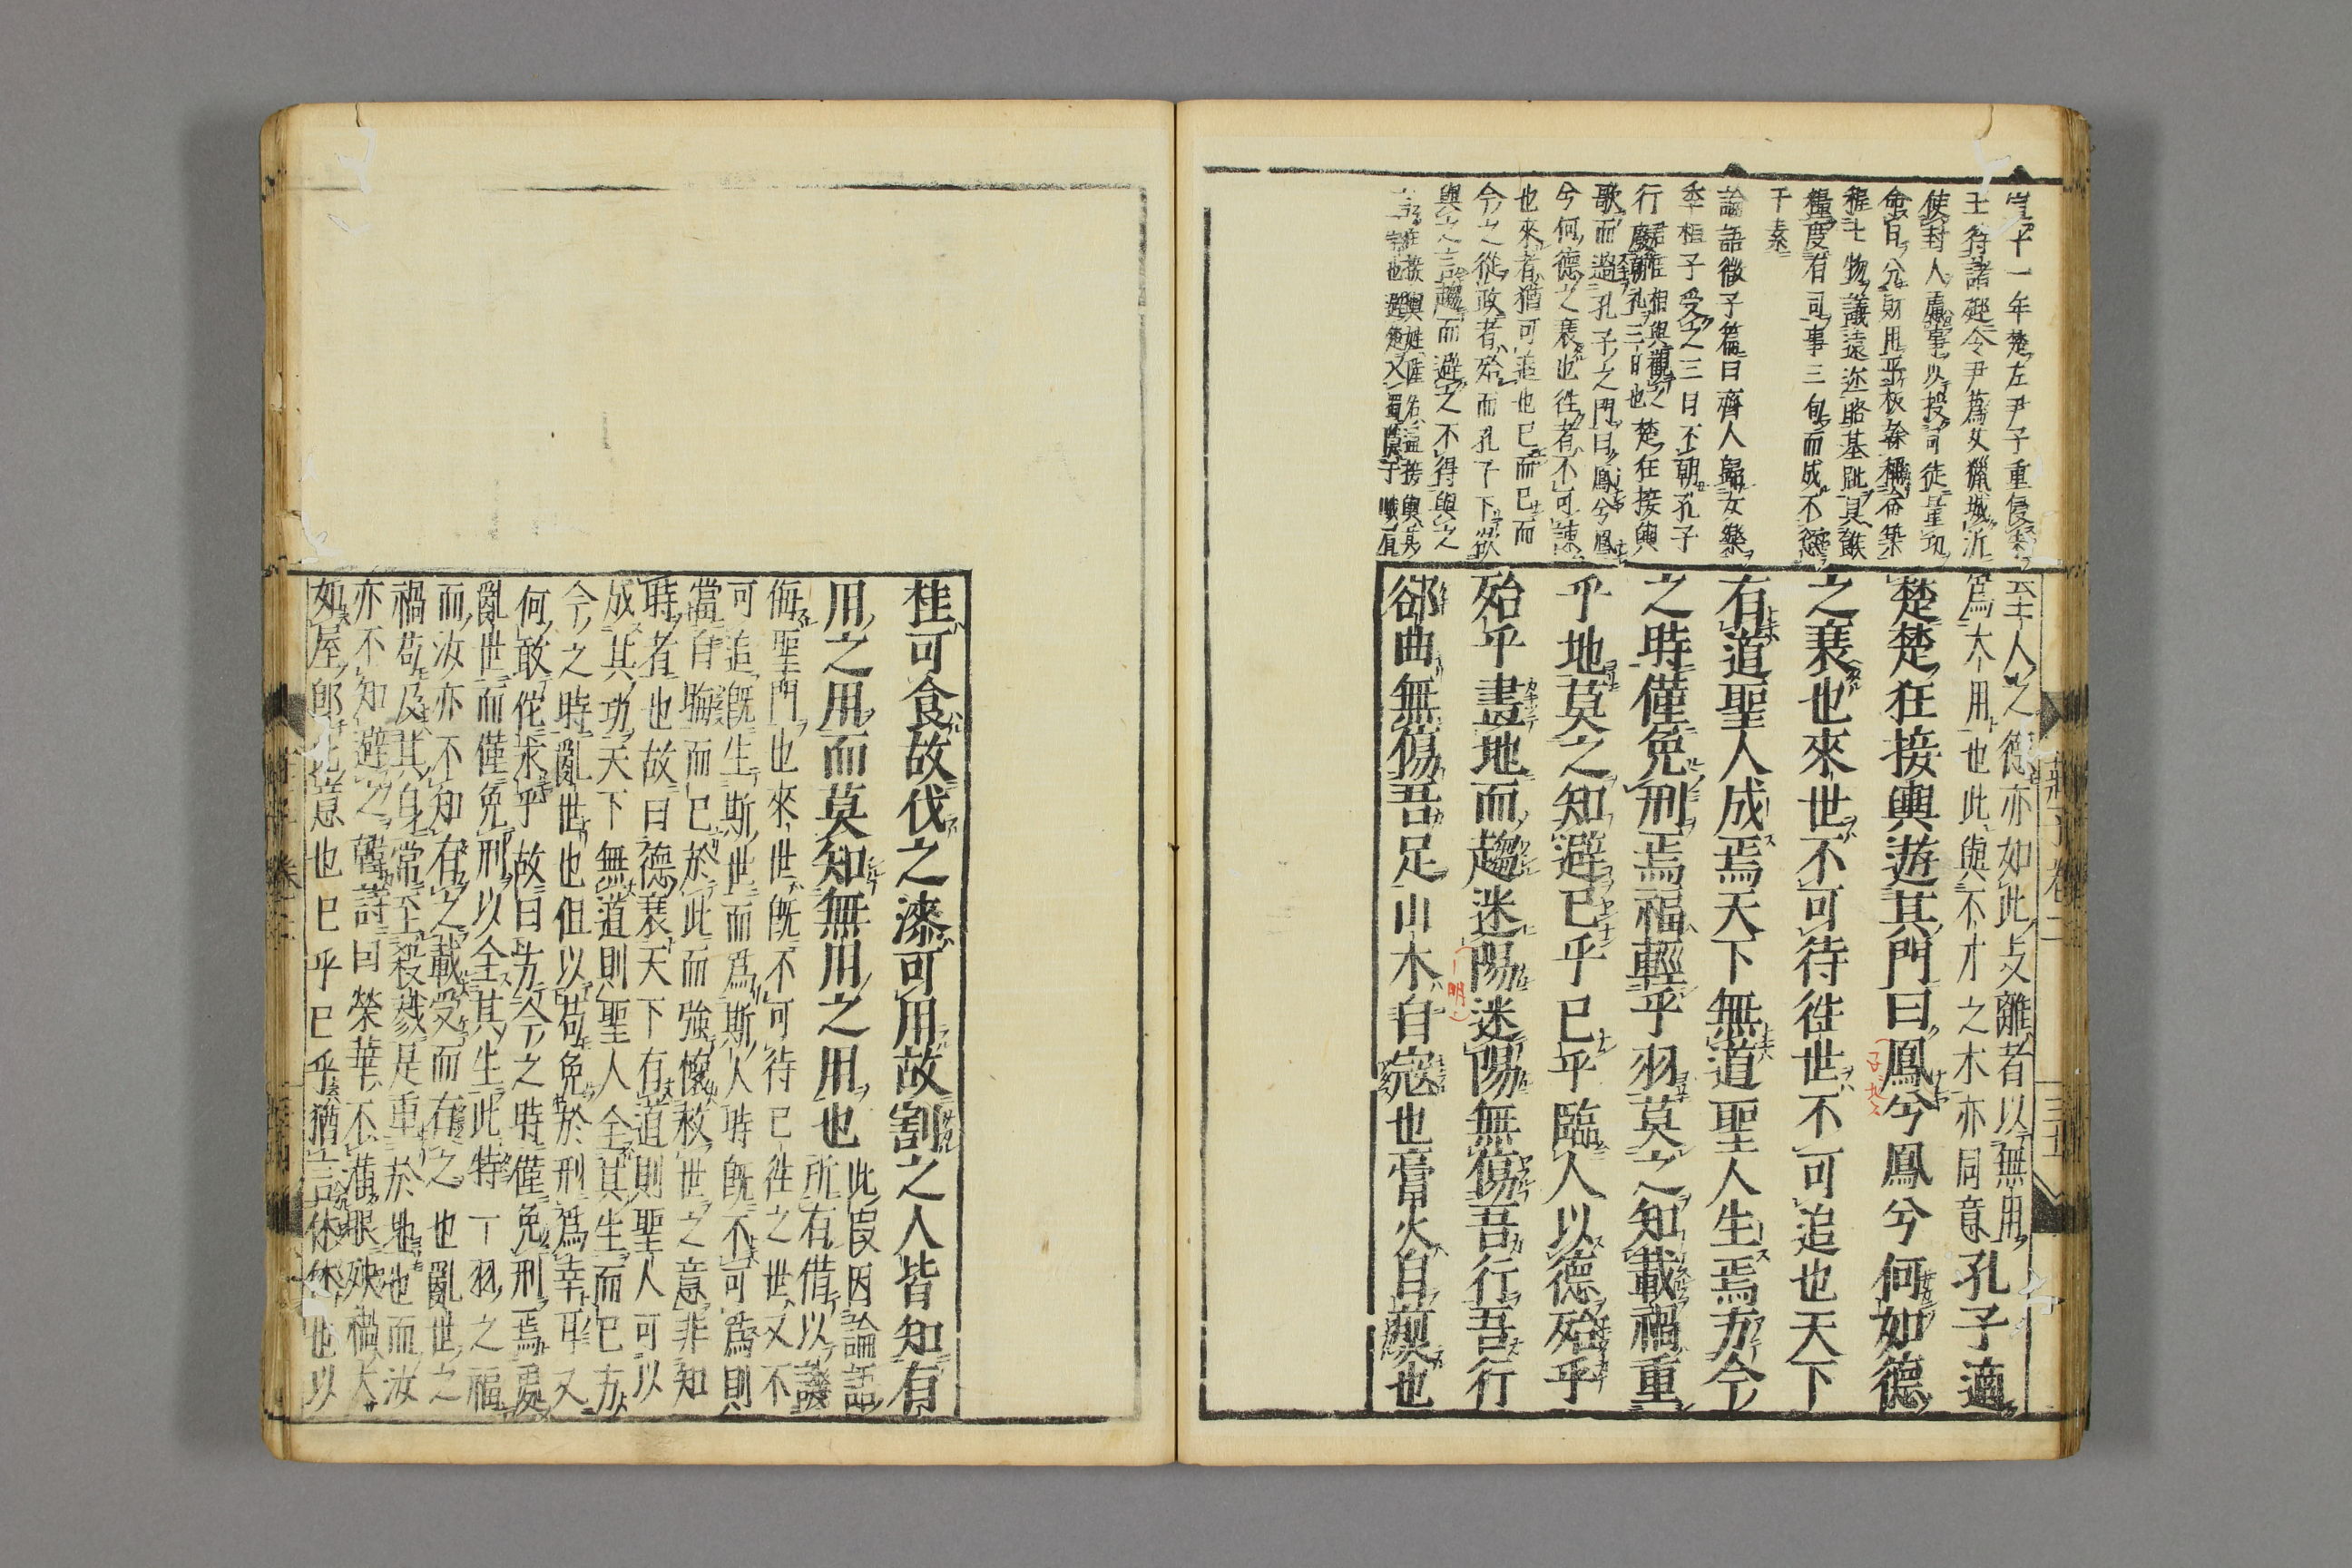 宣十一年楚左尹子重侵宋
王待諸郔令尹蒍艾獵城沂
使封人慮事以授司徒量功
命日分財用平板榦稱畚築
程土物議遠邇略基趾具餱
糧度有司事三旬而成不愆
于素
論語微子篇曰齊人歸女樂
季桓子受之三日不朝孔子
行
楚狂接輿
歌而過孔子之門曰鳳兮鳳
兮何德之衰也往者不可諫
也來者猶可追也已而已而
今之從政者殆而孔子下欲
與之言趨而避之不得與之
至人之德亦如此支離者以無用
爲大用也此與不才之木亦同意孔子適
楚楚狂接輿遊其門曰鳳兮鳳兮何如德
之衰也來世不可待往世不可追也天下
有道聖人成焉天下無道聖人生焉方今
之時僅免刑焉福輕乎羽莫之知載禍重
乎地莫之知避已乎已乎臨人以德殆乎
殆乎畫地而趨迷陽迷陽無傷吾行吾行
郤曲無傷吾足山木自寇也膏火自煎也
桂可食故伐之漆可用故割之人皆知有
用之用而莫知無用之用也
此段因論語
所有借以譏
侮聖門也來世既不可待已往之世又不
可追既生斯世而爲斯人時既不可爲則
當自晦而已於此而強懷救世之意非知
時者也故曰德衰天下有道則聖人可以
成其功天下無道則聖人全其生而已方
今之時亂世也但以苟免於刑爲幸耳又
何敢佗求乎故曰方今之時僅免刑焉處
亂世而僅免刑以全其生此特一羽之福
而汝亦不知有之載受而有之也亂世之
禍苟及其身常至殺戮是重於地也而汝
亦不知避之韓詩曰榮華不滿眼殃禍大
如屋即此意也已乎已乎猶言休休也以